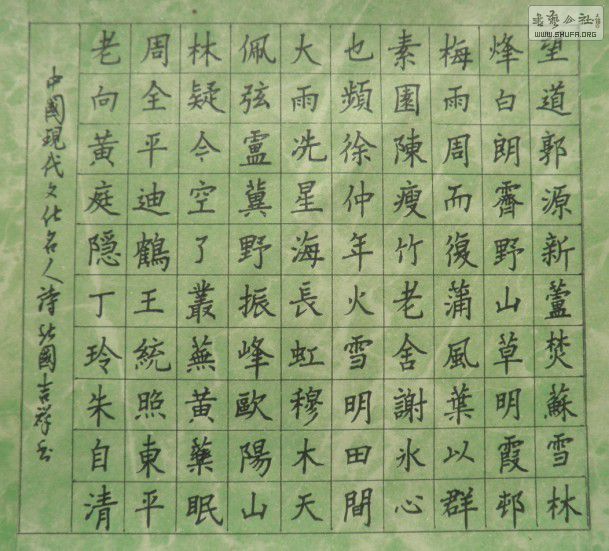 望道郭源新蘆焚蘇雪林
烽白朗霽野山草明霞邨
梅雨周而復蒲風葉以群
素園陳瘦竹老舍謝氷心
也頻徐仲年火雪明田間
大雨冼星海長虹穆木天
佩弦盧冀野振峰歐陽山
林疑今空了叢蕪黃藥眠
周全平迪鶴王統照東平
老向黃庭隐丁玲朱自清
中國現代文化名人詩北國吉祥书
WWW.SHUFA.ORG